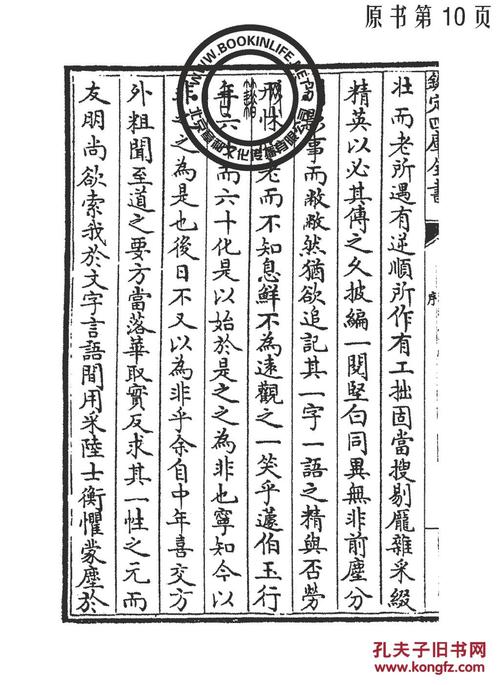 原书第10页
欽定四庫全書
序
壯而老所遇有逆順所作有工拙固當搜剔龎雜采綴
精英以必其傳之久披編一閱堅白同異無非前塵分
事而敝敝然猶欲追記其一字一語之精與否勞
形怵老而不知息鮮不為遠觀之一笑乎蘧伯玉行
年六而六十化是以始於是之之為非也寧知今以
之之為是也後日不又以為非乎余自中年喜交方
外粗聞至道之要方當落華取實反求其一性之元而
友朋尚欲索我於文字言語間用采陸士衡懼蒙塵於
WWW.BOOKINLIFE.NET
文化传播有限公司
孔夫子旧书网
www.kongfz.com